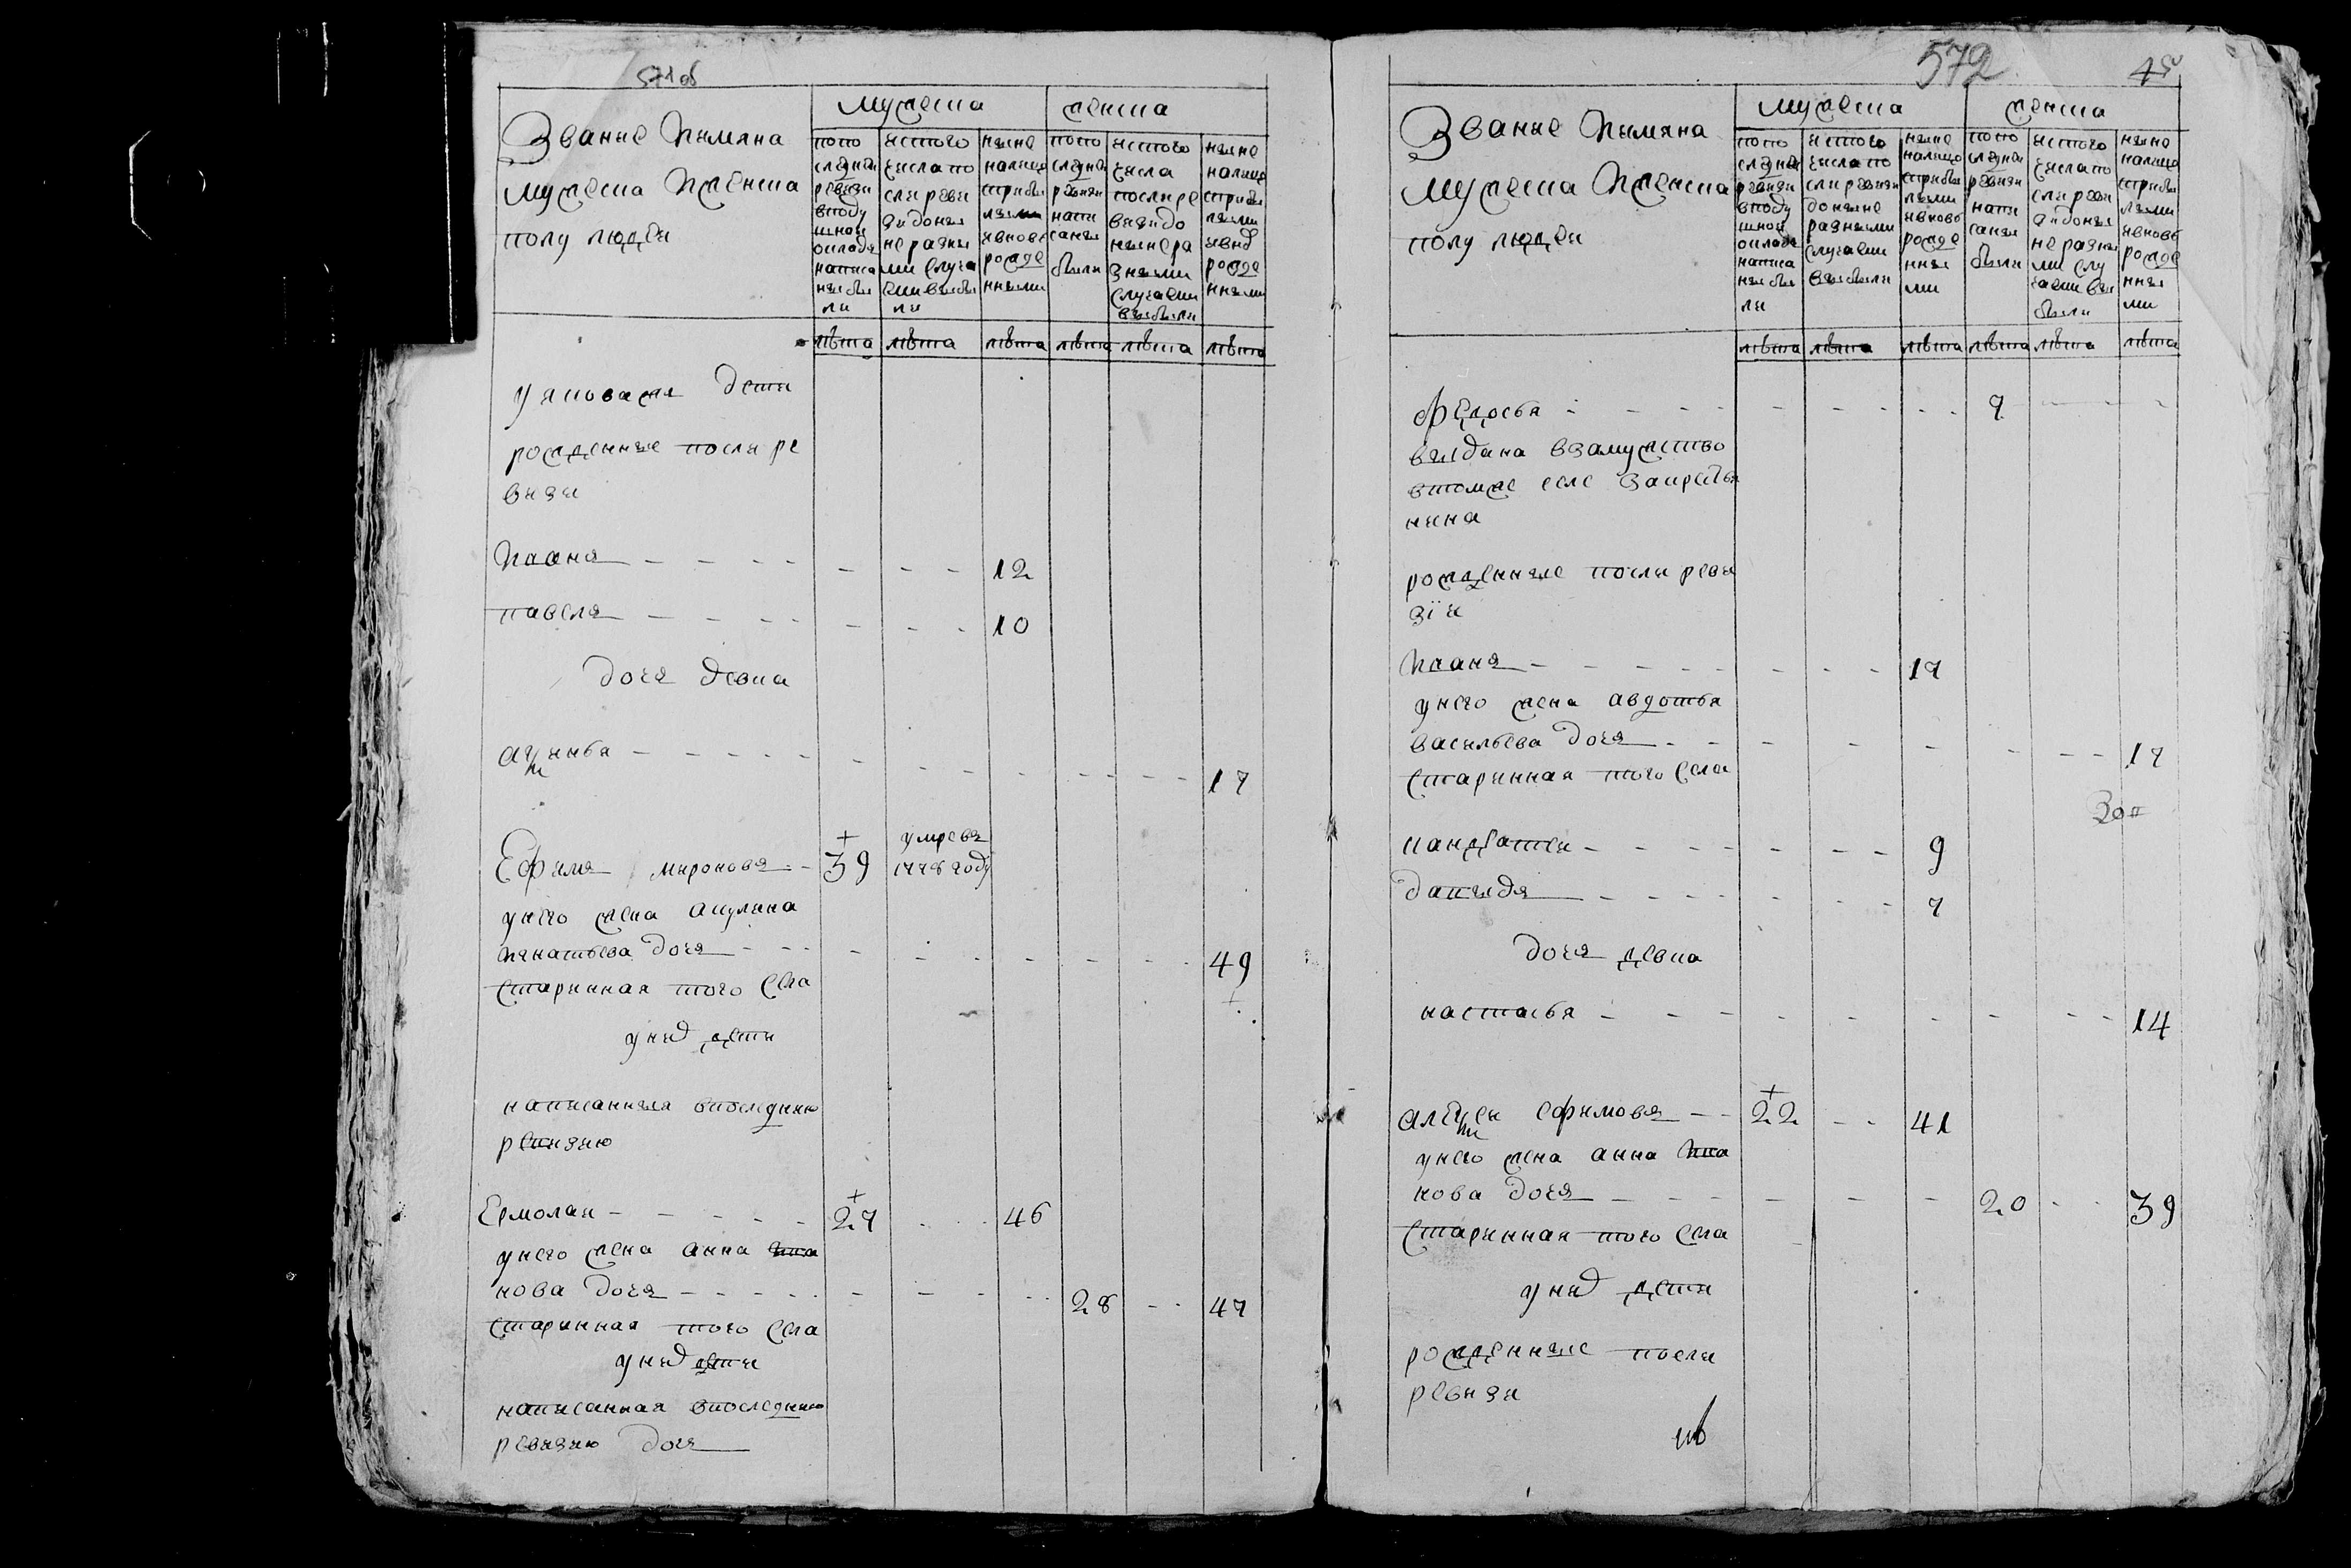 571об
Звание имяна
мужеска иженска
полу людеи
мужеска
женска
попо
следнеи
ревизи
вподу
шнои
окладъ
написа
ны бы
ли
истого
числа по
сли реви
зи доны
не разны
ми случа
еми выбы
ли
ныне
налицо
сприбы
лыми
ивновь
рожде
нными
попо
следнеи
ревизи
напи
саны
были
исого
числа
послире
визи до
ныне ра
зными
случаеми
выбыли
ныне
налицо
сприбы
лыми
ивнъ
рожде
нными
лѣта лѣта лѣта лѣта лѣта лѣта
уяковажя дети
рожденные после ре
визи
иванъ 12
павелъ 10
дочь девка
аѳинья 17
Ефимъ мироновъ 39 умре въ 1778 году
унего жена акулина
игнатьева дочь 49
старинная того села
уних дети
написанныя впоследнюю
ревизию
Ермолаи 27 46
унего жена анна ива
нова дочь 28 47
старинная того села
уних дети
написанная впоследнюю
ревизию дочь
572
Звание имяна
мужеска иженска
полу людеи
мужеска
женска
попо
следнеи
ревизи
вподу
шнои
окладъ
написа
ны бы
ли
истого
числа по
сли ревизи
доныне
разными
случаеми
выбыли
ныне
налицо
сприбы
лыми
ивновь
рожде
нны
ми
попо
следнеи
ревизи
напи
саны
были
исого
числа по
сли реви
зи доны
не разны
ми слу
чаеми вы
были
ныне
налицо
сприбы
лыми
ивновь
рожде
нны
ми
лѣта лѣта лѣта лѣта лѣта лѣта
Федосья 7
выдана взамужство
втомже селе закрестья
нина
рожденные после реви
зїи
иванъ 17
унего жена авдотья
васильева дочь 17
старинная того села
кандратеи 9
давыдъ 7
дочь девка
настасья 14
алексеи ефимовъ 22 41
унего жена анна ива
нова дочь 20 39
старинная того села
уних дети
рожденные после
ревизи